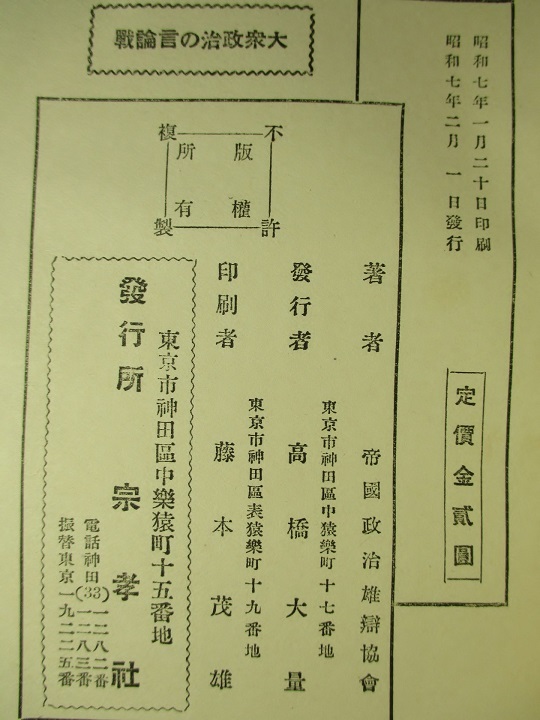 大衆政治の言論戰
昭和七年一月二十日印刷
昭和七年二月一日發行
定價金貳圓
不許複製
版權所有
著者 帝國政治雄辯協會
東京市神田區中樂猿町十七番地
發行者 高橋大量
東京市神田區表猿樂町十九番地
印刷者 藤本茂雄
東京市神田區中樂猿町十五番地
發行所 宗孝社
電話神田(33)一二八二番
一二八三番
振替東京一九二二五番